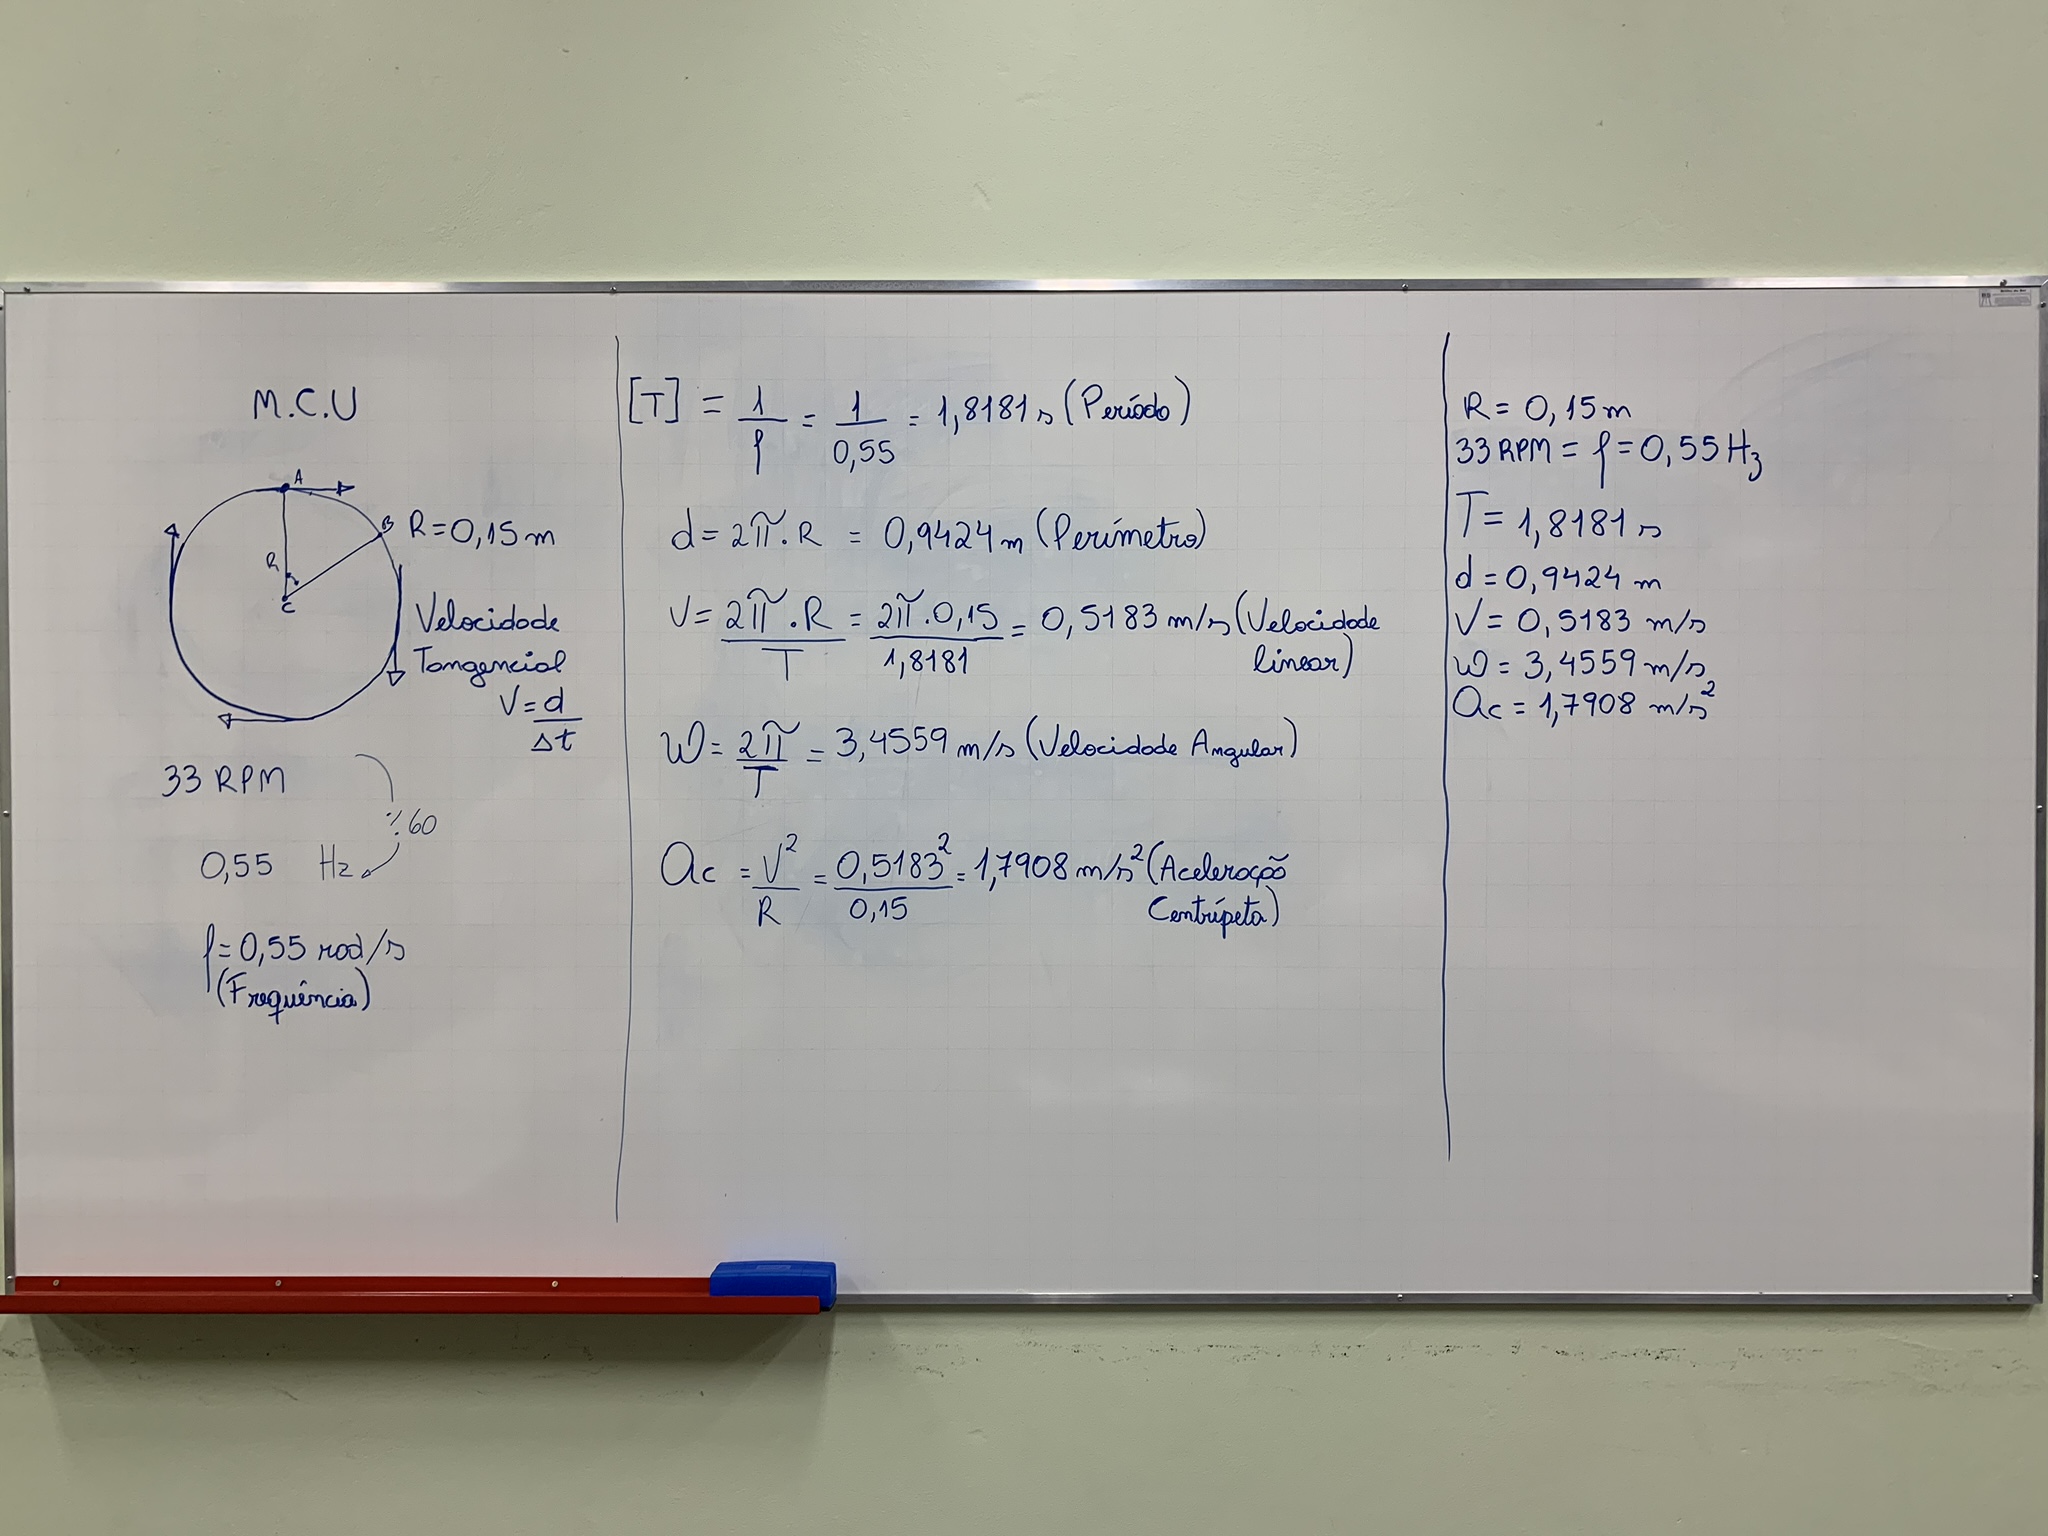 M.C.U
A
B
R = 0,15 m
R
C
Velocidade
Tangencial
V = d/Δt
33 RPM
÷60
0,55 Hz
f = 0,55 rad/s
(Frequência)
[T] = 1/f = 1/0,55 = 1,8181 s (Período)
d = 2π.R = 0,9424 m (Perímetro)
V = 2π.R/T = 2π.0,15/1,8181 = 0,5183 m/s (Velocidade
linear)
W = 2π/T = 3,4559 m/s (Velocidade Angular)
ac = V²/R = 0,5183²/0,15 = 1,7908 m/s² (Aceleração
Centrípeta)
R = 0,15 m
33 RPM = f = 0,55 Hz
T = 1,8181 s
d = 0,9424 m
V = 0,5183 m/s
W = 3,4559 m/s
ac = 1,7908 m/s²